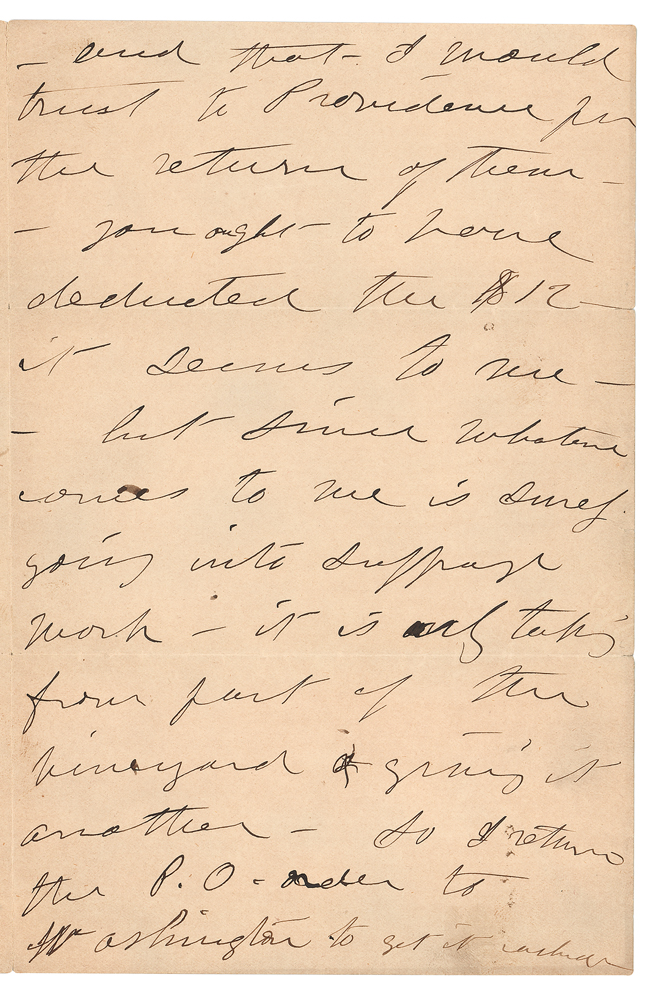 - and that - I would
trust to Providence for
the return of them -
- you ought to have
deducted the $12 -
it seems to me -
- but since whatever
comes to me is surely
going into suffrage
work - it is only taking
from part of the
vineyard & giving it
another - so I return
the P. O. order to
Washington to get it cashed